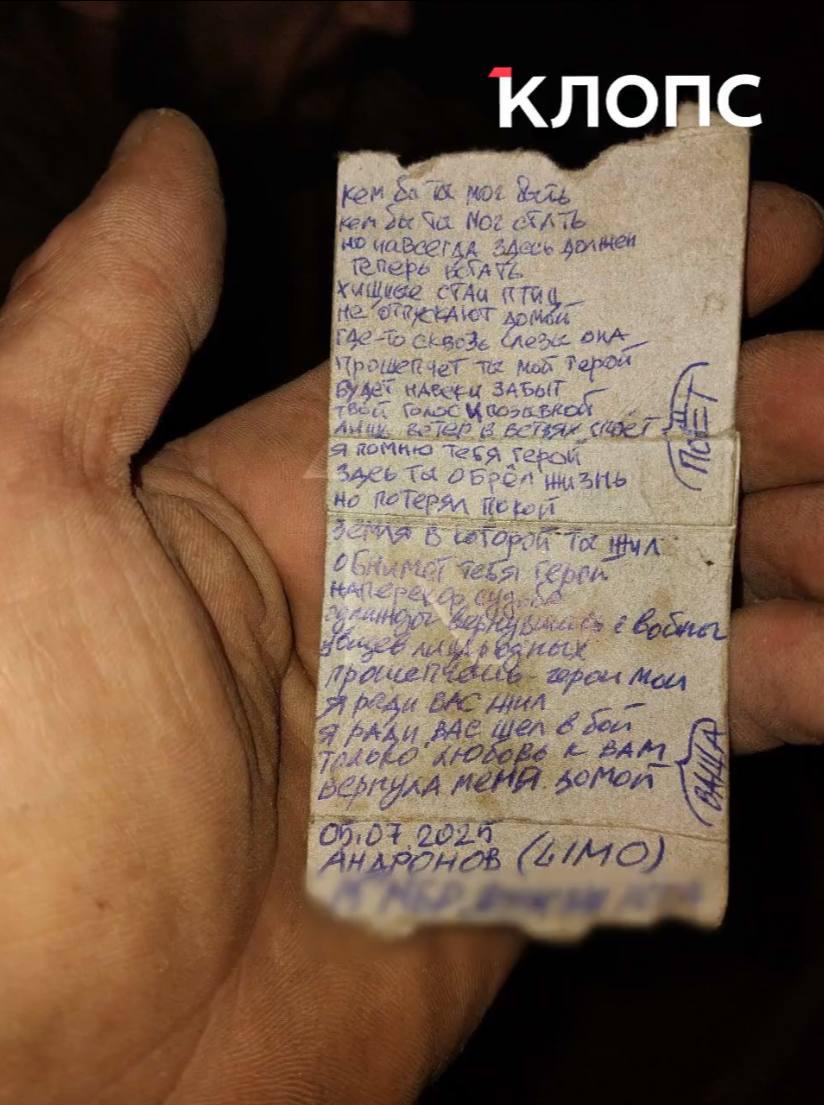 КЛОПС
кем бы ты мог быть
кем бы ты мог стать
но навсегда здесь должен
теперь встать
хищные стаи птиц
не отпускают домой
где-то сквозь слезы она
прошепчет ты мой герой
будет навеки забыт
твой голос и позывной
лишь ветер в ветвях споёт
я помню тебя герой
ПОЁТ
здесь ты обрёл жизнь
но потерял покой
земля в которой ты жил
обнимет тебя герой
наперекор судьбе
однажды вернувшись с войны
увидев лица родных
прошепчешь - герои мои
я ради вас жил
я ради вас шел в бой
только любовь к вам
вернула меня домой
05.07.2025
АНДРОНОВ (LIMO)